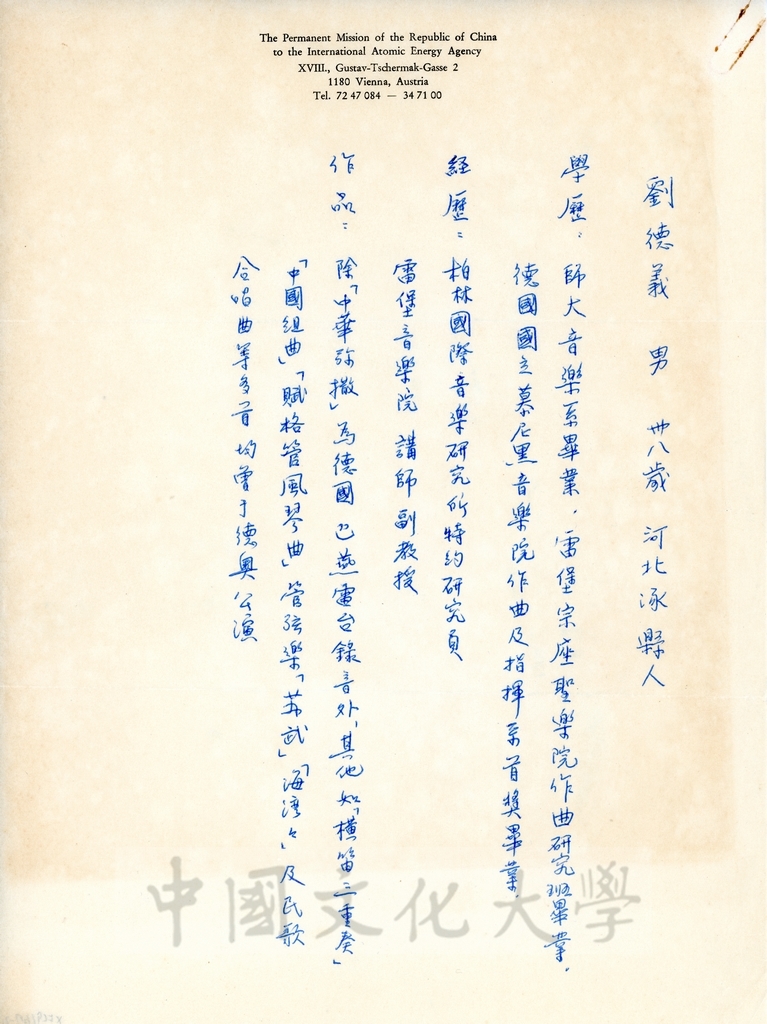 The Permanent Mission of the Republic of China
to the International Atomic Energy Agency
XVIII., Gustav-Tschermak-Gasse 2
1180 Vienna, Austria
Tel. 72 47 084 — 34 71 00
劉德義 男 卅八歲 河北涿縣人
學歷：師大音樂系畢業．雷堡宗座聖樂院作曲研究班畢業．
德國國立慕尼黑音樂院作曲及指揮系首獎畢業．
經歷：柏林國際音樂研究所特約研究員
雷堡音樂院講師副教授
作品：除「中華弥撒」為德國巴燕電台錄音外，其他如「橫笛三重奏」
「中國組曲」「賦格管風琴曲」管弦樂「蘇武」「海湾上」及民歌
合唱曲等多首均曾于德奧公演
中國文化大學